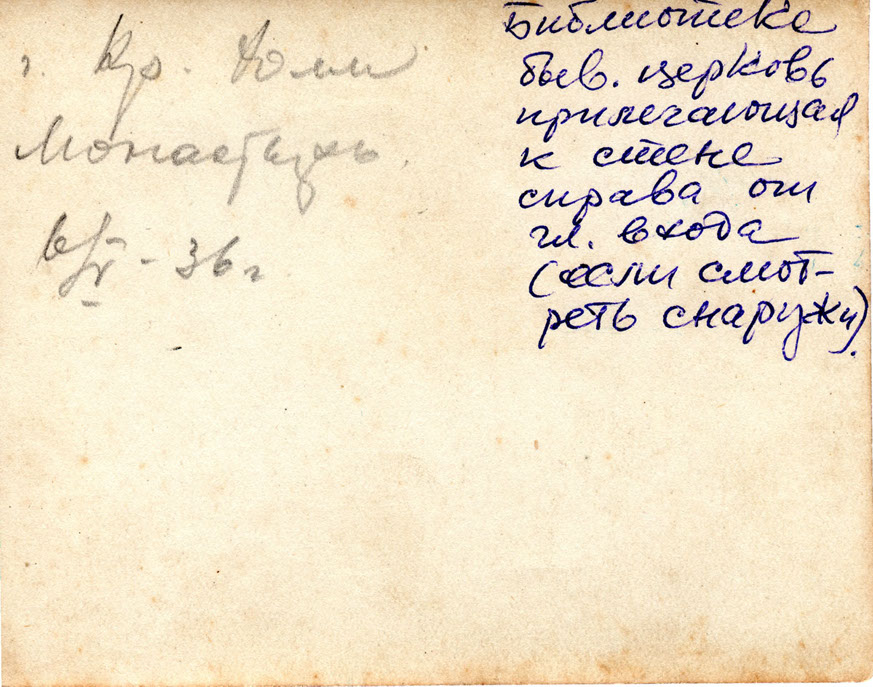 г. Кр. Холм
Монастырь.
6/V - 36 г
Библиотека
быв. церковь
примечающая
к стене
справа от
гл. входа
(если смот-
реть снаружи).